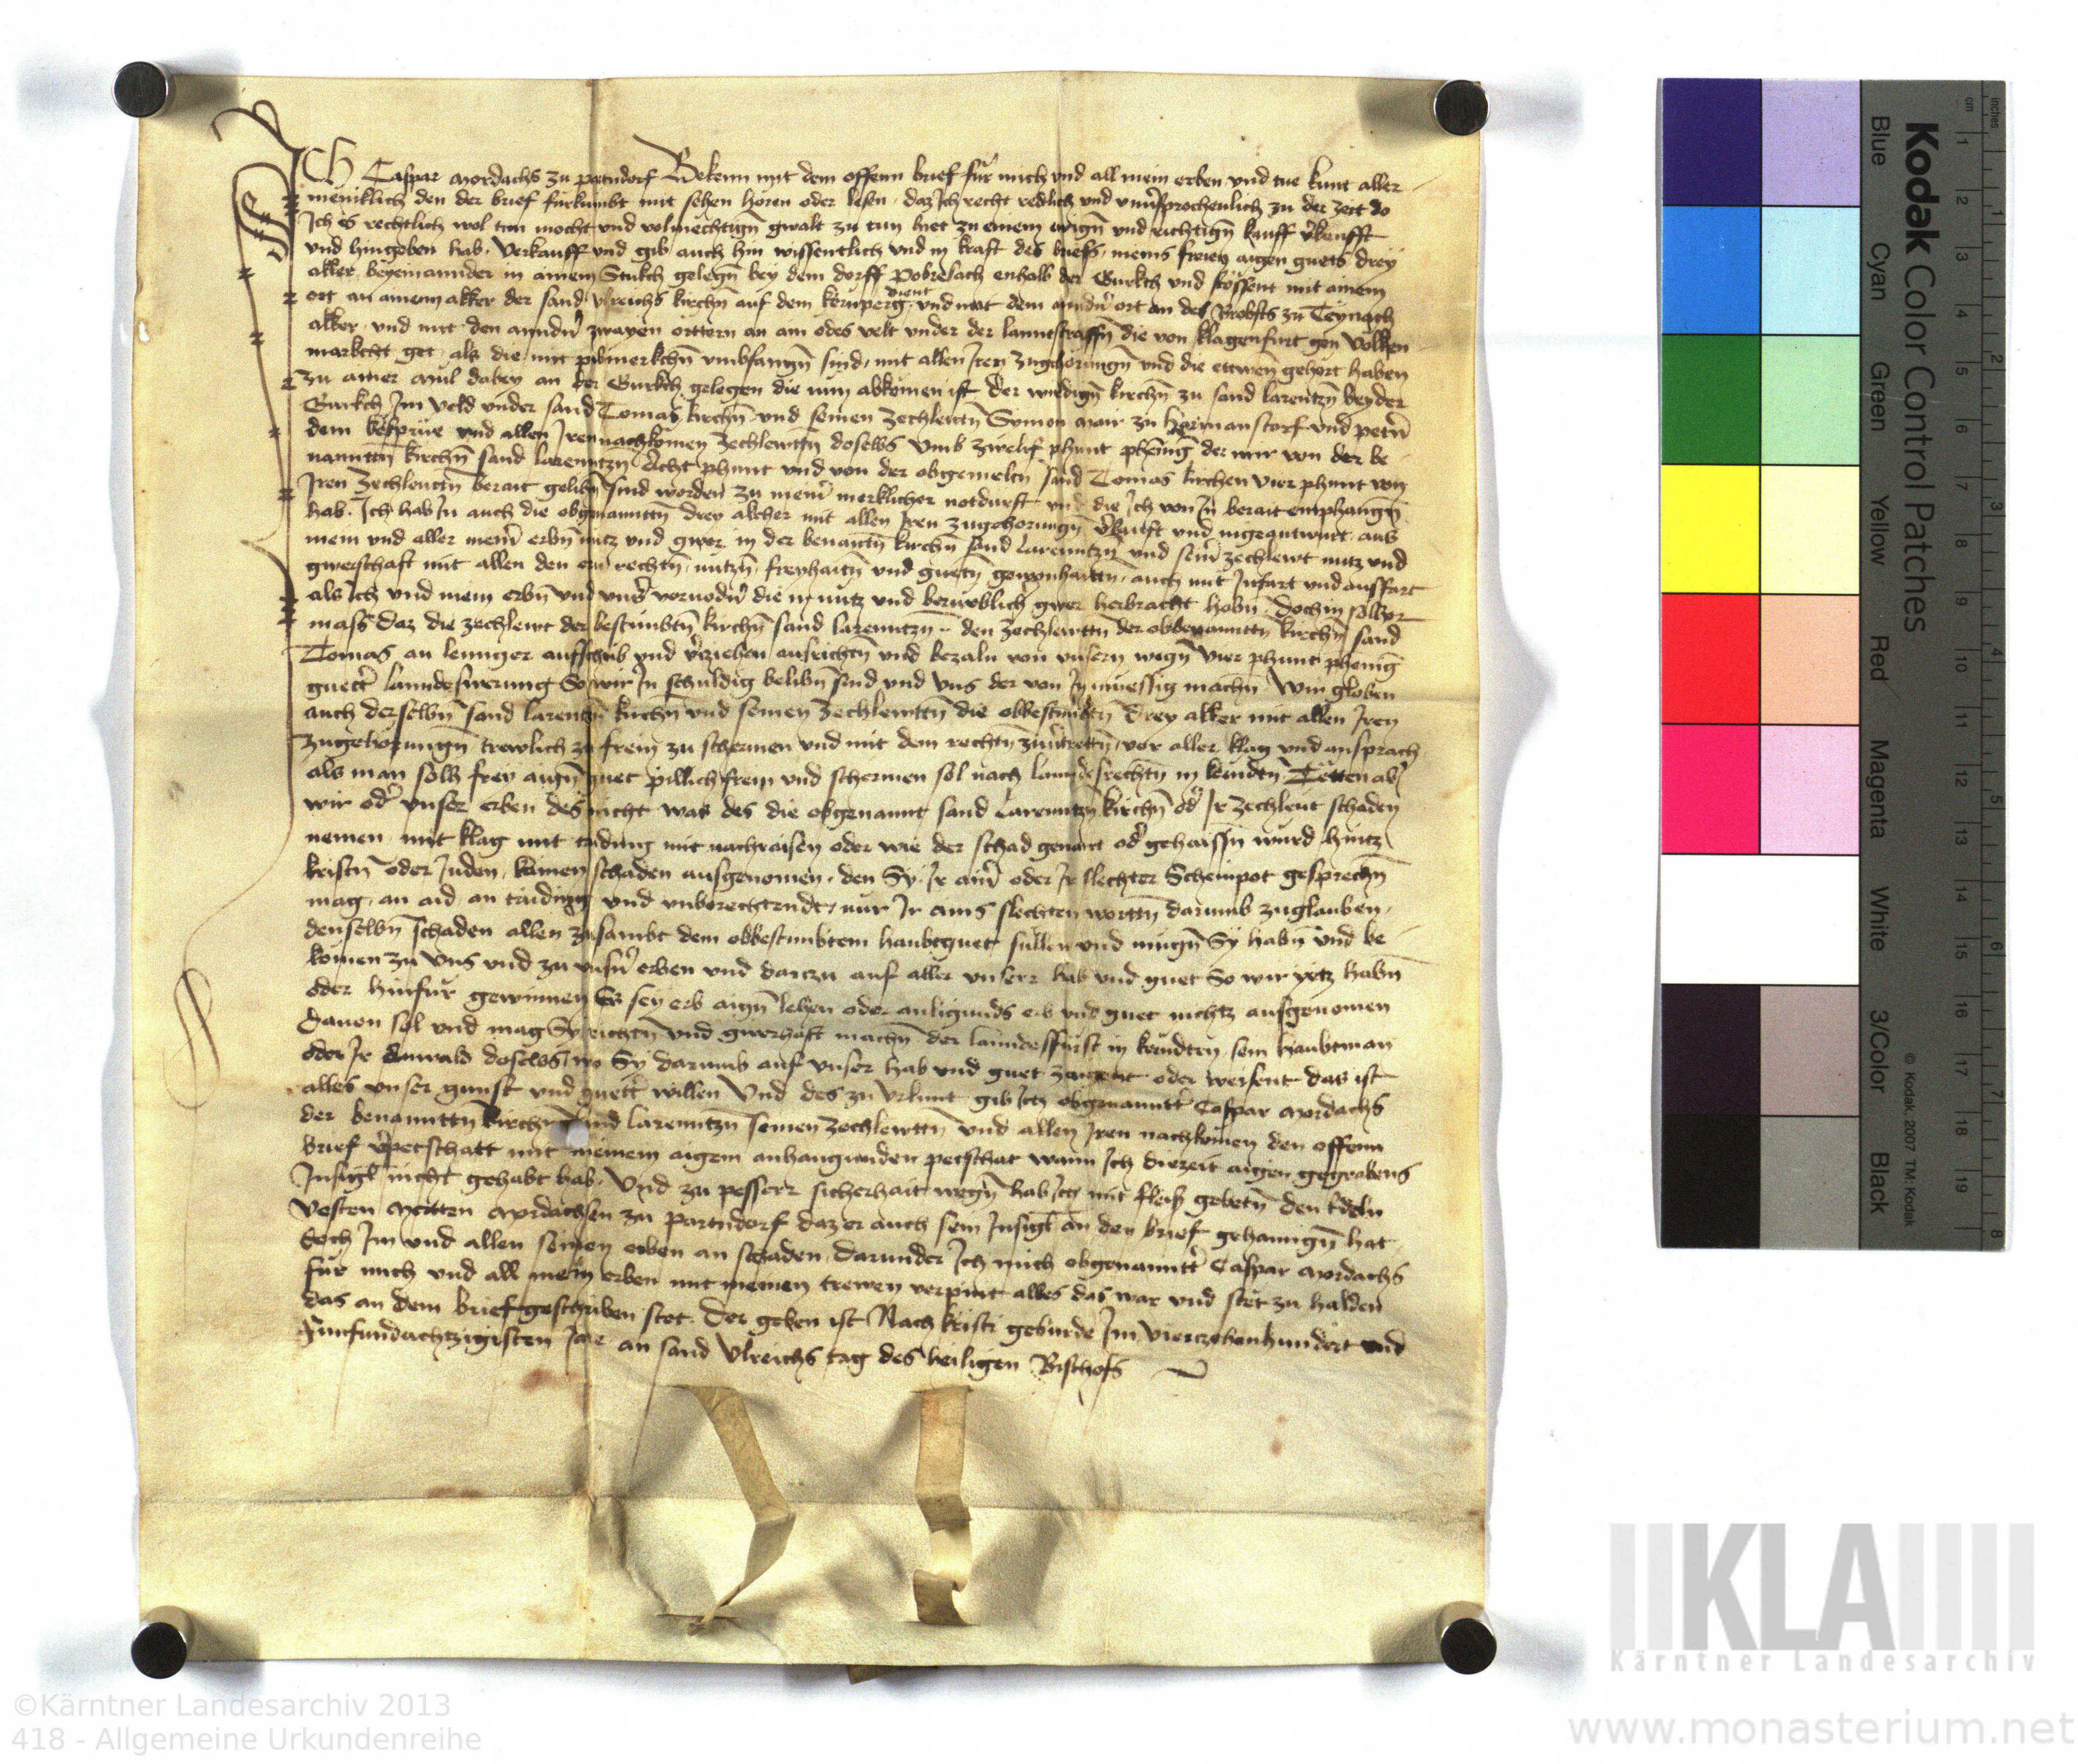 Ich Caspar Mordachs zu portndorf Bekenn mit dem offenn brief für mich vnd all mein erben vnd tue kunt aller
meniklich den der brief furkumbt mit sehen horen oder lesen, daz Ich recht redlich vnd vnu'sprochenlich zu der Zeit do
Ich es rechtlich wol tun mocht vnd volmechtign gwalt zu tun het zu einem ewign vnd richtign kauff v'kaufft
vnd hingeben hab. Verkauff vnd gib auch hin wissentlich vnd in kraft des briefs, meins freien aigen guets drey
akker beyeinannder in ainem Stukch gelegn bey dem dorff Pobrelach enhalb der Gurkch vnd stossent mit ainem
ort an ainem akker der sand Vlreichs kirchn auf dem kernperg dient vnd mit dem anndn' ort an des Brobsts zu Teynach
akker, vnd mit den anndn' zwayen orttern an am odes velt vnder der lanntstrassn die von klagenfurt gen Volken-
markcht get, als die mit pibmerkchn vmbfangn sind, mit allen Iren zugehorungn vnd die ettwen gehort haben
zu ainer Mul dabey an der Gurkch gelegen die nun abkomen ist der wirdign kirchn zu sand larentzn bey der
Gurkch Im Veld vnder sand Tomas kirchn vnd seinen Zechlewttn Symon Mair zu Hormanstorf vnd petern
dem vnd allen Iren nachkomen Zechlewttn doselbs Vmb zwelif phunt phening der wir von der be-
nanntten kirchn sand larenntzn Acht phunt vnd von der obgemeltn sand Tomas kirchen vier phunt von
Iren Zechleuttn berait gelihn sind worden zu meiner merklicher notdurft vnd die Ich von In berait emphangn
hab. Ich hab In auch die obgenanntn drey akcher mit allen Iren zugehorungn v'kaufft vnd ingeantwurt aus
mein vnd aller meiner erbn nutz vnd gwer in der benantn kirchn sand larenntzn vnd seiner zechlewt nutz vnd
gwerschaft mit allen den ern rechtn, nutzn, freyhaitn vnd guetn gewonhaittn, auch mit Infart vnd ausfart
als Ich vnd mein erbn vnd vnser vorvodern die in nutz vnd berueblich gwer herbracht habn. Doch in solher
mass daz die zechlewt der bestimbtn kirchn sand larenntzn den Zechlewttn der obbenanntn kirchn sand
Tomas an lennger aufschub vnd v'ziehen ausrichtn vnd bezaln von vnsern wegn vier phunt phening
guetter lanndeswerung So wir In schuldig belibn sind vnd Vns der von In muessig machn. Wir globen
auch derselbn sand larentzn kirchn vnd seinen Zechlewttn die obbestimbtn drey akker mit allen Iren
zugehorungn trewlich zu frein zu schermen vnd mit dem rechtn zuu'trettn, vor aller klag vnd ansprach
als man solh frey aign guet pillich frein vnd schermen sol nach lanndesrechtn in kernndtn. Tetten aber
wir oder vnser erben des nicht was des die obgenannt sand larenntzn kirchn oder Ir zechleut schaden
nemen, mit klag mit taidung mit nachraisen oder wie der schad genant oder gehaissn wurd, hintz
kristn oder Juden, kainen schaden ausgenomen, den Sy, Ir ainer oder Ir slechter Scheinpot gesprechn
mag, an aid, an taiding vnd vnberechtendt, nur Ir ains slechten wortten darumb zuglauben,
denselbn schaden allen zusambt dem obbestimbtem haubtguet sullen vnd mugn Sy habn vnd be-
komen zu Vns vnd zu vnsern erben vnd darzu auf aller vnserr hab vnd guet So wir yetz habn
oder hinfur gewinnen Es sey erb aign lehen oder anligunds erb vnd guet nichtz ausgenomen
Dauon sol vnd mag Sy richten vnd gwerhaft machn der lanndesfürst in kerndten, sein haubtman
oder Ir Anwald doselbs wo Sy darumb auf vnser hab vnd guet zaigent oder weisent das ist
alles vnser gunst vnd guetter willen Vnd des zu vrkunt gib Ich obgenanntter Caspar Mordachs
der benanntten kirchn sand larenntzn seinen Zechlewttn vnd allen Iren nachkomen den offenn
brief v'petschatt mit meinem aigem anhangunden petschat wann Ich diezeit aigen gegrabens
Insigl nicht gehabt hab. Vnd zu pesserr sicherhait wegn hab Ich mit fleis gebetn den Edeln
Vesten Mordachsen zu Portndorf daz er auch sein Insigl an den brief gehanngn hat,
doch Im vnd allen seinen erben an schaden, darunder Ich mich obgenanntter Caspar Mordachs
für mich vnd all mein erben mit meinen trewen verpint alles das war vnd stet zu halden
das an dem brief geschriben stet. Der geben ist Nach kristi geburde Im vierczehenhundert vnd
Funfundachtzigisten Jare an sand Vlreichs tag des heiligen Bischofs
Kodak Color Control Patches
Blue Cyan Green Yellow Red Magenta White 3/Color Black
© Kodak, 2007 TM: Kodak
cm 1 2 3 4 5 6 7 8 9 10 11 12 13 14 15 16 17 18 19
inches 1 2 3 4 5 6 7 8
KLA
Kärntner Landesarchiv
©Kärntner Landesarchiv 2013
418 - Allgemeine Urkundenreihe
www.monasterium.net